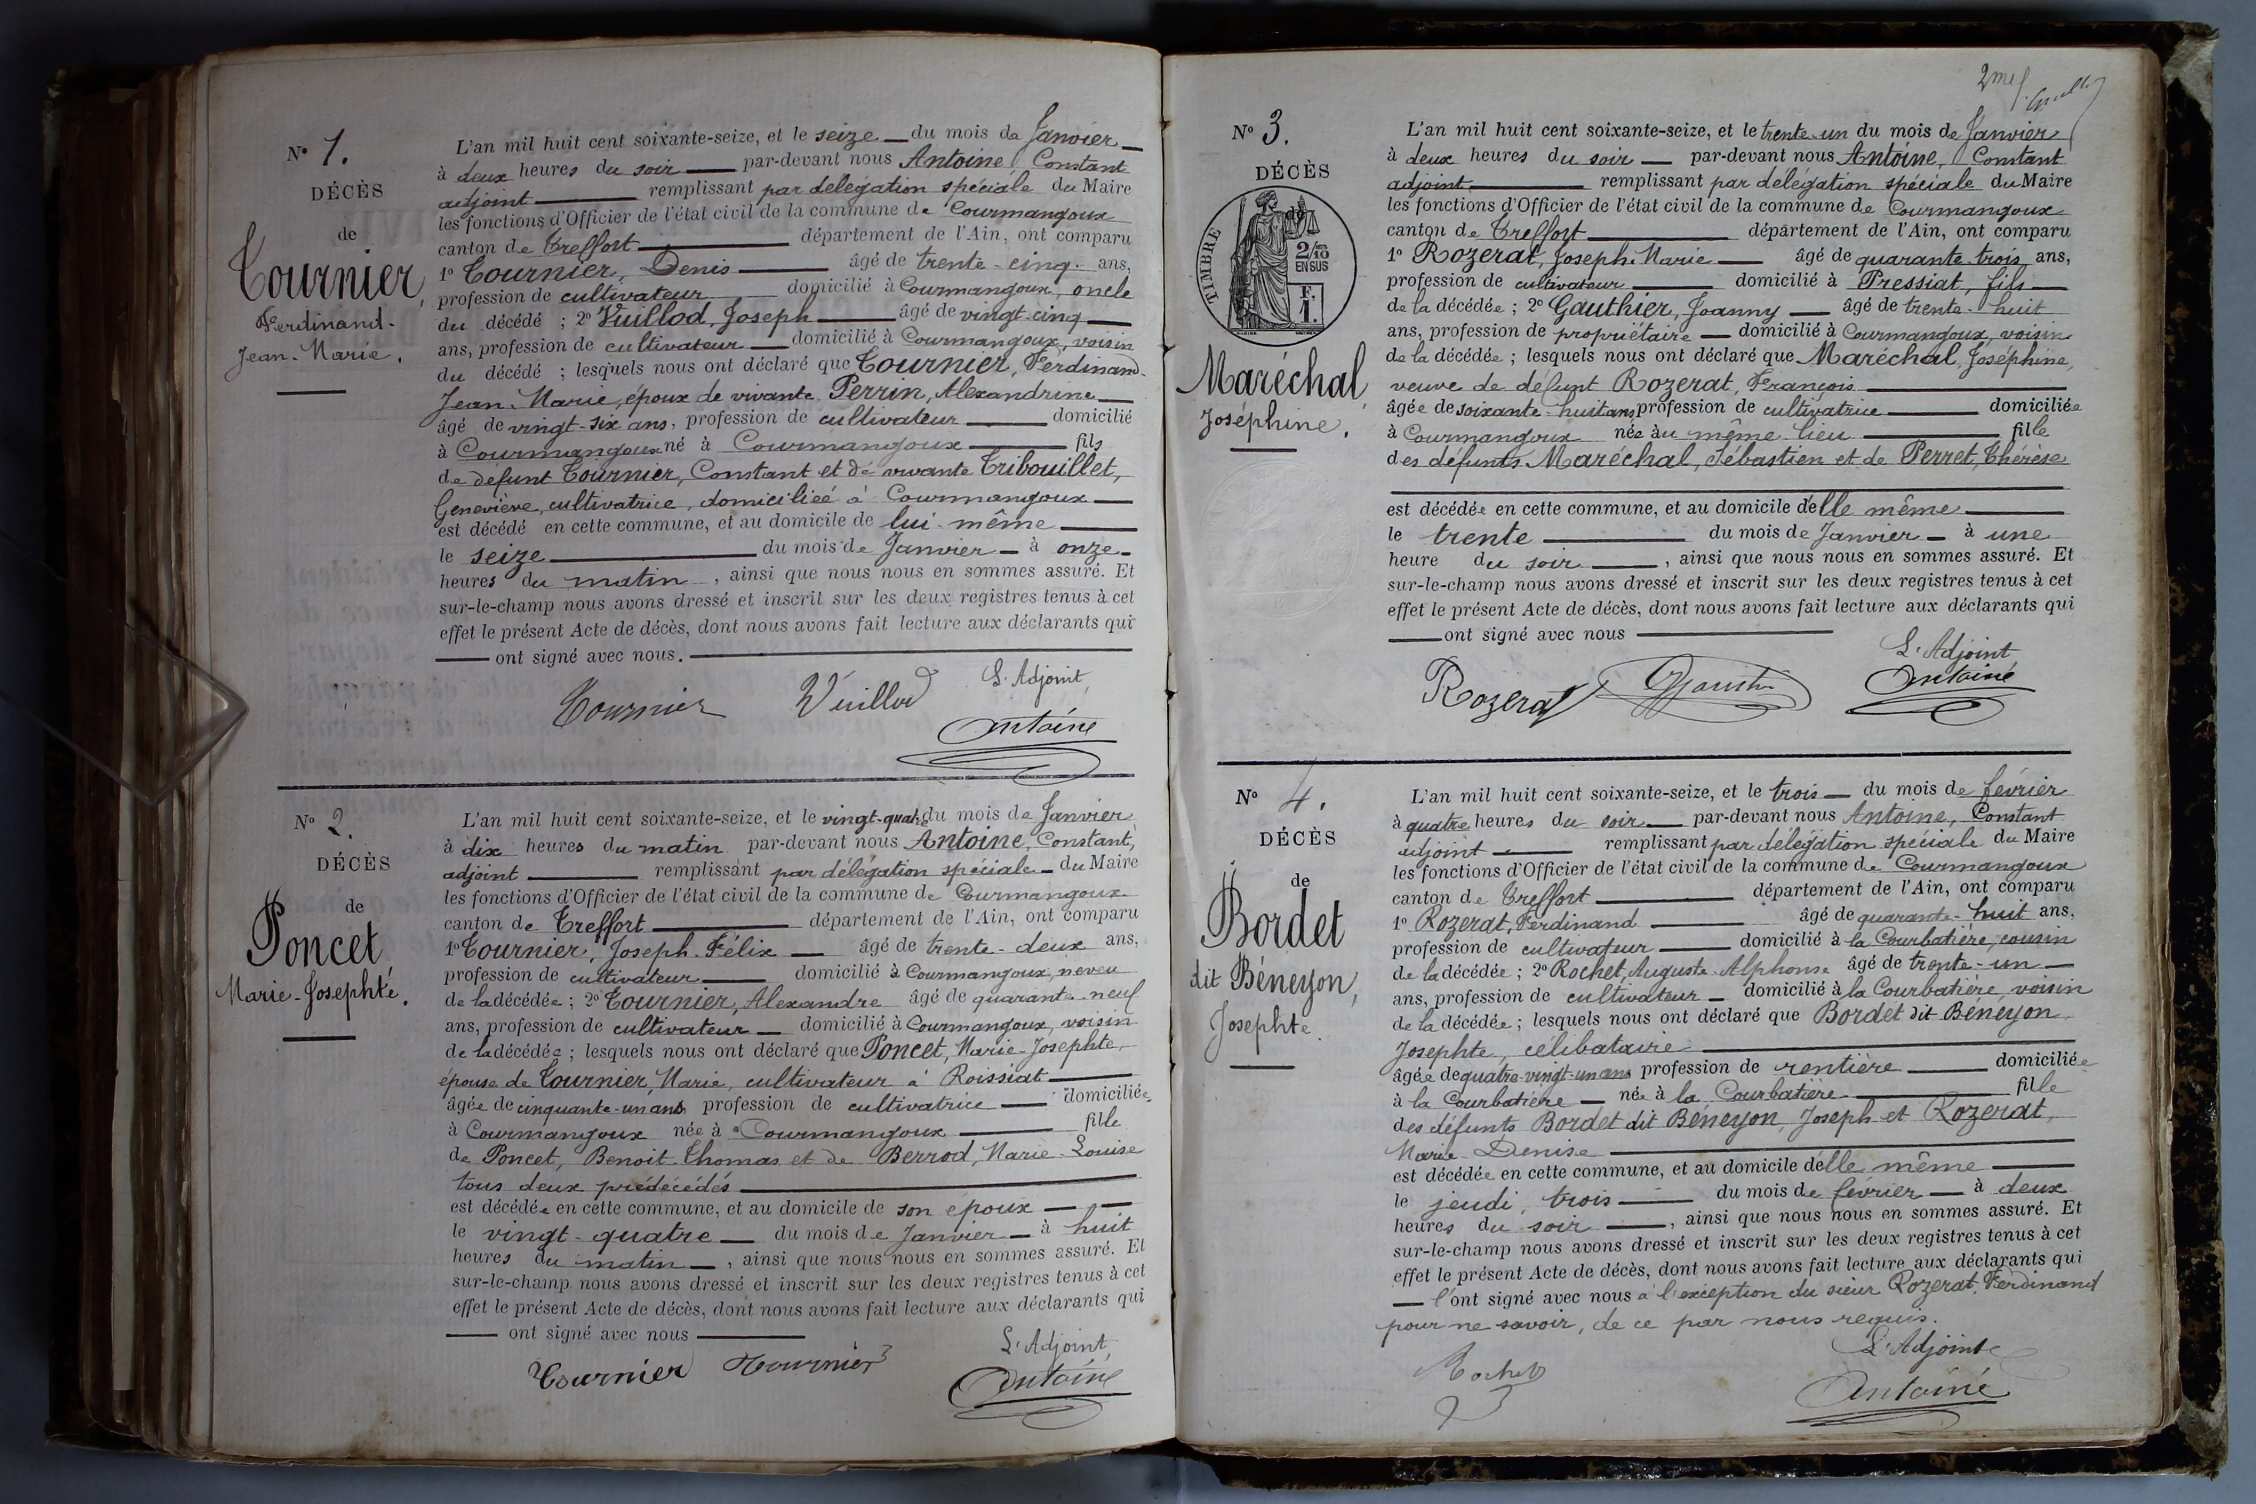 N° 1.
DÉCÈS
de
Tournier,
Ferdinand-
Jean-Marie.
L'an mil huit cent soixante-seize, et le seize du mois de Janvier
à deux heures du soir par-devant nous Antoine, Constant
adjoint remplissant par délégation spéciale du Maire
les fonctions d'Officier de l'état civil de la commune de Courmangoux
canton de Treffort département de l'Ain, ont comparu
1° Tournier, Denis âgé de trente-cinq ans,
profession de cultivateur domicilié à Courmangoux, oncle
du décédé ; 2° Vuillod, Joseph âgé de vingt-cinq
ans, profession de cultivateur domicilié à Courmangoux, voisin
du décédé ; lesquels nous ont déclaré que Tournier, Ferdinand-
Jean-Marie, époux de vivante Perrin, Alexandrine
âgé de vingt-six ans, profession de cultivateur domicilié
à Courmangoux né à Courmangoux fils
de défunt Tournier, Constant et de vivante Tribouillet,
Geneviève, cultivatrice, domiciliée à Courmangoux
est décédé en cette commune, et au domicile de lui-même
le seize du mois de Janvier à onze
heures du matin, ainsi que nous nous en sommes assuré. Et
sur-le-champ nous avons dressé et inscrit sur les deux registres tenus à cet
effet le présent Acte de décès, dont nous avons fait lecture aux déclarants qui
ont signé avec nous.
L'Adjoint,
Tournier Vuillod
Antoine
N° 2.
DÉCÈS
de
Poncet
Marie-Josephte.
L'an mil huit cent soixante-seize, et le vingt-quatre du mois de Janvier
à dix heures du matin par-devant nous Antoine, Constant,
adjoint remplissant par délégation spéciale du Maire
les fonctions d'Officier de l'état civil de la commune de Courmangoux
canton de Treffort département de l'Ain, ont comparu
1° Tournier, Joseph-Félix âgé de trente-deux ans,
profession de cultivateur domicilié à Courmangoux, neveu
de la décédée ; 2° Tournier, Alexandre âgé de quarante-neuf
ans, profession de cultivateur domicilié à Courmangoux, voisin
de la décédée ; lesquels nous ont déclaré que Poncet, Marie-Josephte,
épouse de Tournier, Marie, cultivateur à Roissiat
âgée de cinquante-un ans profession de cultivatrice domiciliée
à Courmangoux née à Courmangoux fille
de Poncet, Benoit-Thomas et de Berrod, Marie-Louise
tous deux prédécédés
est décédée en cette commune, et au domicile de son époux
le vingt-quatre du mois de Janvier à huit
heures du matin, ainsi que nous nous en sommes assuré. Et
sur-le-champ nous avons dressé et inscrit sur les deux registres tenus à cet
effet le présent Acte de décès, dont nous avons fait lecture aux déclarants qui
ont signé avec nous
L'Adjoint,
Tournier Tournier
Antoine
2me f.
N° 3.
DÉCÈS
de
TIMBRE
2/10 EN SUS
F. 1.
Maréchal,
Joséphine.
L'an mil huit cent soixante-seize, et le trente-un du mois de Janvier
à deux heures du soir par-devant nous Antoine, Constant
adjoint remplissant par délégation spéciale du Maire
les fonctions d'Officier de l'état civil de la commune de Courmangoux
canton de Treffort département de l'Ain, ont comparu
1° Rozerat, Joseph-Marie âgé de quarante-trois ans,
profession de cultivateur domicilié à Pressiat, fils
de la décédée ; 2° Gauthier, Joanny âgé de trente-huit
ans, profession de propriétaire domicilié à Courmangoux, voisin
de la décédée ; lesquels nous ont déclaré que Maréchal, Joséphine,
veuve de défunt Rozerat, François
âgée de soixante-huit ans profession de cultivatrice domiciliée
à Courmangoux née au même lieu fille
des défunts Maréchal, Sébastien et de Perret, Thérèse
est décédée en cette commune, et au domicile d'elle même
le trente du mois de Janvier à une
heure du soir, ainsi que nous nous en sommes assuré. Et
sur-le-champ nous avons dressé et inscrit sur les deux registres tenus à cet
effet le présent Acte de décès, dont nous avons fait lecture aux déclarants qui
ont signé avec nous
L'Adjoint
Rozerat
Antoine
N° 4.
DÉCÈS
de
Bordet
dit Béneyon,
Josephte.
L'an mil huit cent soixante-seize, et le trois du mois de février
à quatre heures du soir par-devant nous Antoine, Constant
adjoint remplissant par délégation spéciale du Maire
les fonctions d'Officier de l'état civil de la commune de Courmangoux
canton de Treffort département de l'Ain, ont comparu
1° Rozerat, Ferdinand âgé de quarante-huit ans,
profession de cultivateur domicilié à la Courbatière, cousin
de la décédée ; 2° Rochet, Auguste-Alphonse âgé de trente-un
ans, profession de cultivateur domicilié à la Courbatière, voisin
de la décédée ; lesquels nous ont déclaré que Bordet dit Béneyon
Josephte, célibataire
âgée de quatre-vingt-un ans profession de rentière domiciliée
à la Courbatière née à la Courbatière fille
des défunts Bordet dit Béneyon, Joseph et Rozerat,
Marie-Denise
est décédée en cette commune, et au domicile d'elle même
le jeudi, trois du mois de février à deux
heures du soir, ainsi que nous nous en sommes assuré. Et
sur-le-champ nous avons dressé et inscrit sur les deux registres tenus à cet
effet le présent Acte de décès, dont nous avons fait lecture aux déclarants qui
l'ont signé avec nous à l'exception du sieur Rozerat, Ferdinand
pour ne savoir, de ce par nous requis.
L'Adjoint
Rochet
Antoine